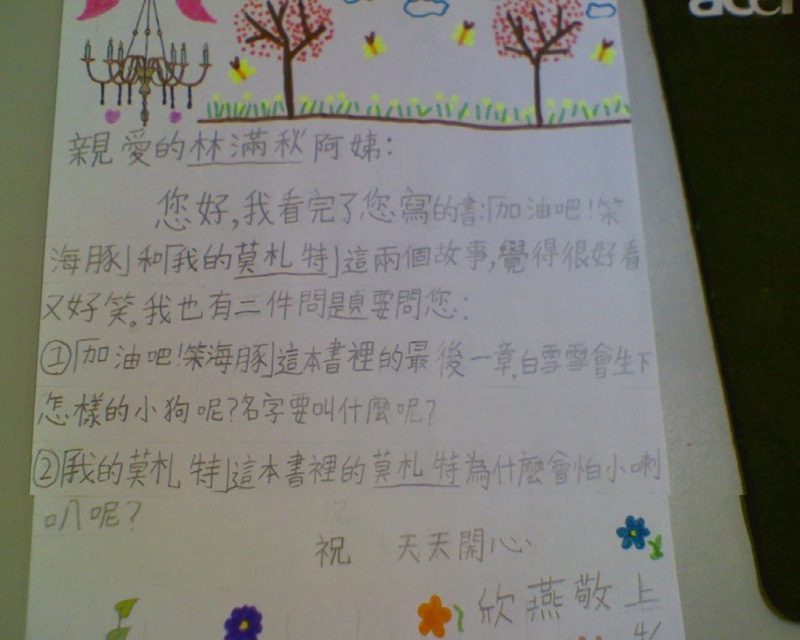 acer
親愛的林滿秋阿姨:
您好,我看完了您寫的書:「加油吧!笨
海豚」和「我的莫札特」這兩個故事,覺得很好看
又好笑。我也有三件問題要問您:
①「加油吧!笨海豚」這本書裡的最後一章,白雪雪會生下
怎樣的小狗呢?名字要叫什麼呢?
②「我的莫札特」這本書裡的莫札特為什麼會怕小喇
叭呢?
祝 天天開心
欣燕敬上
4/